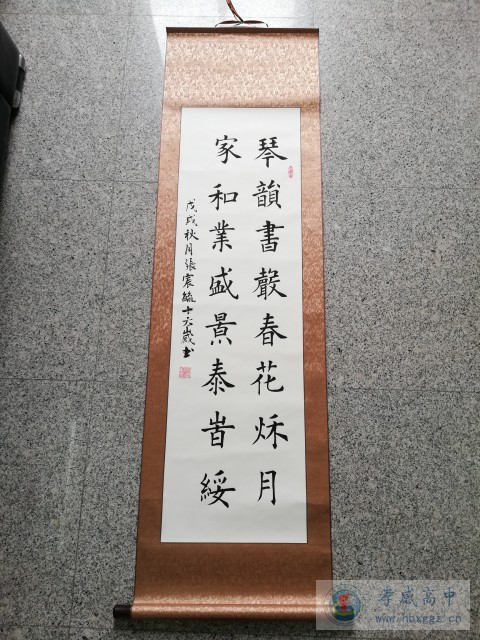 琴韻書聲春花秋月
家和業盛景泰旹綏
戊戌秋月張震毓十六歲书
孝感高中
www.hbxggz.cn